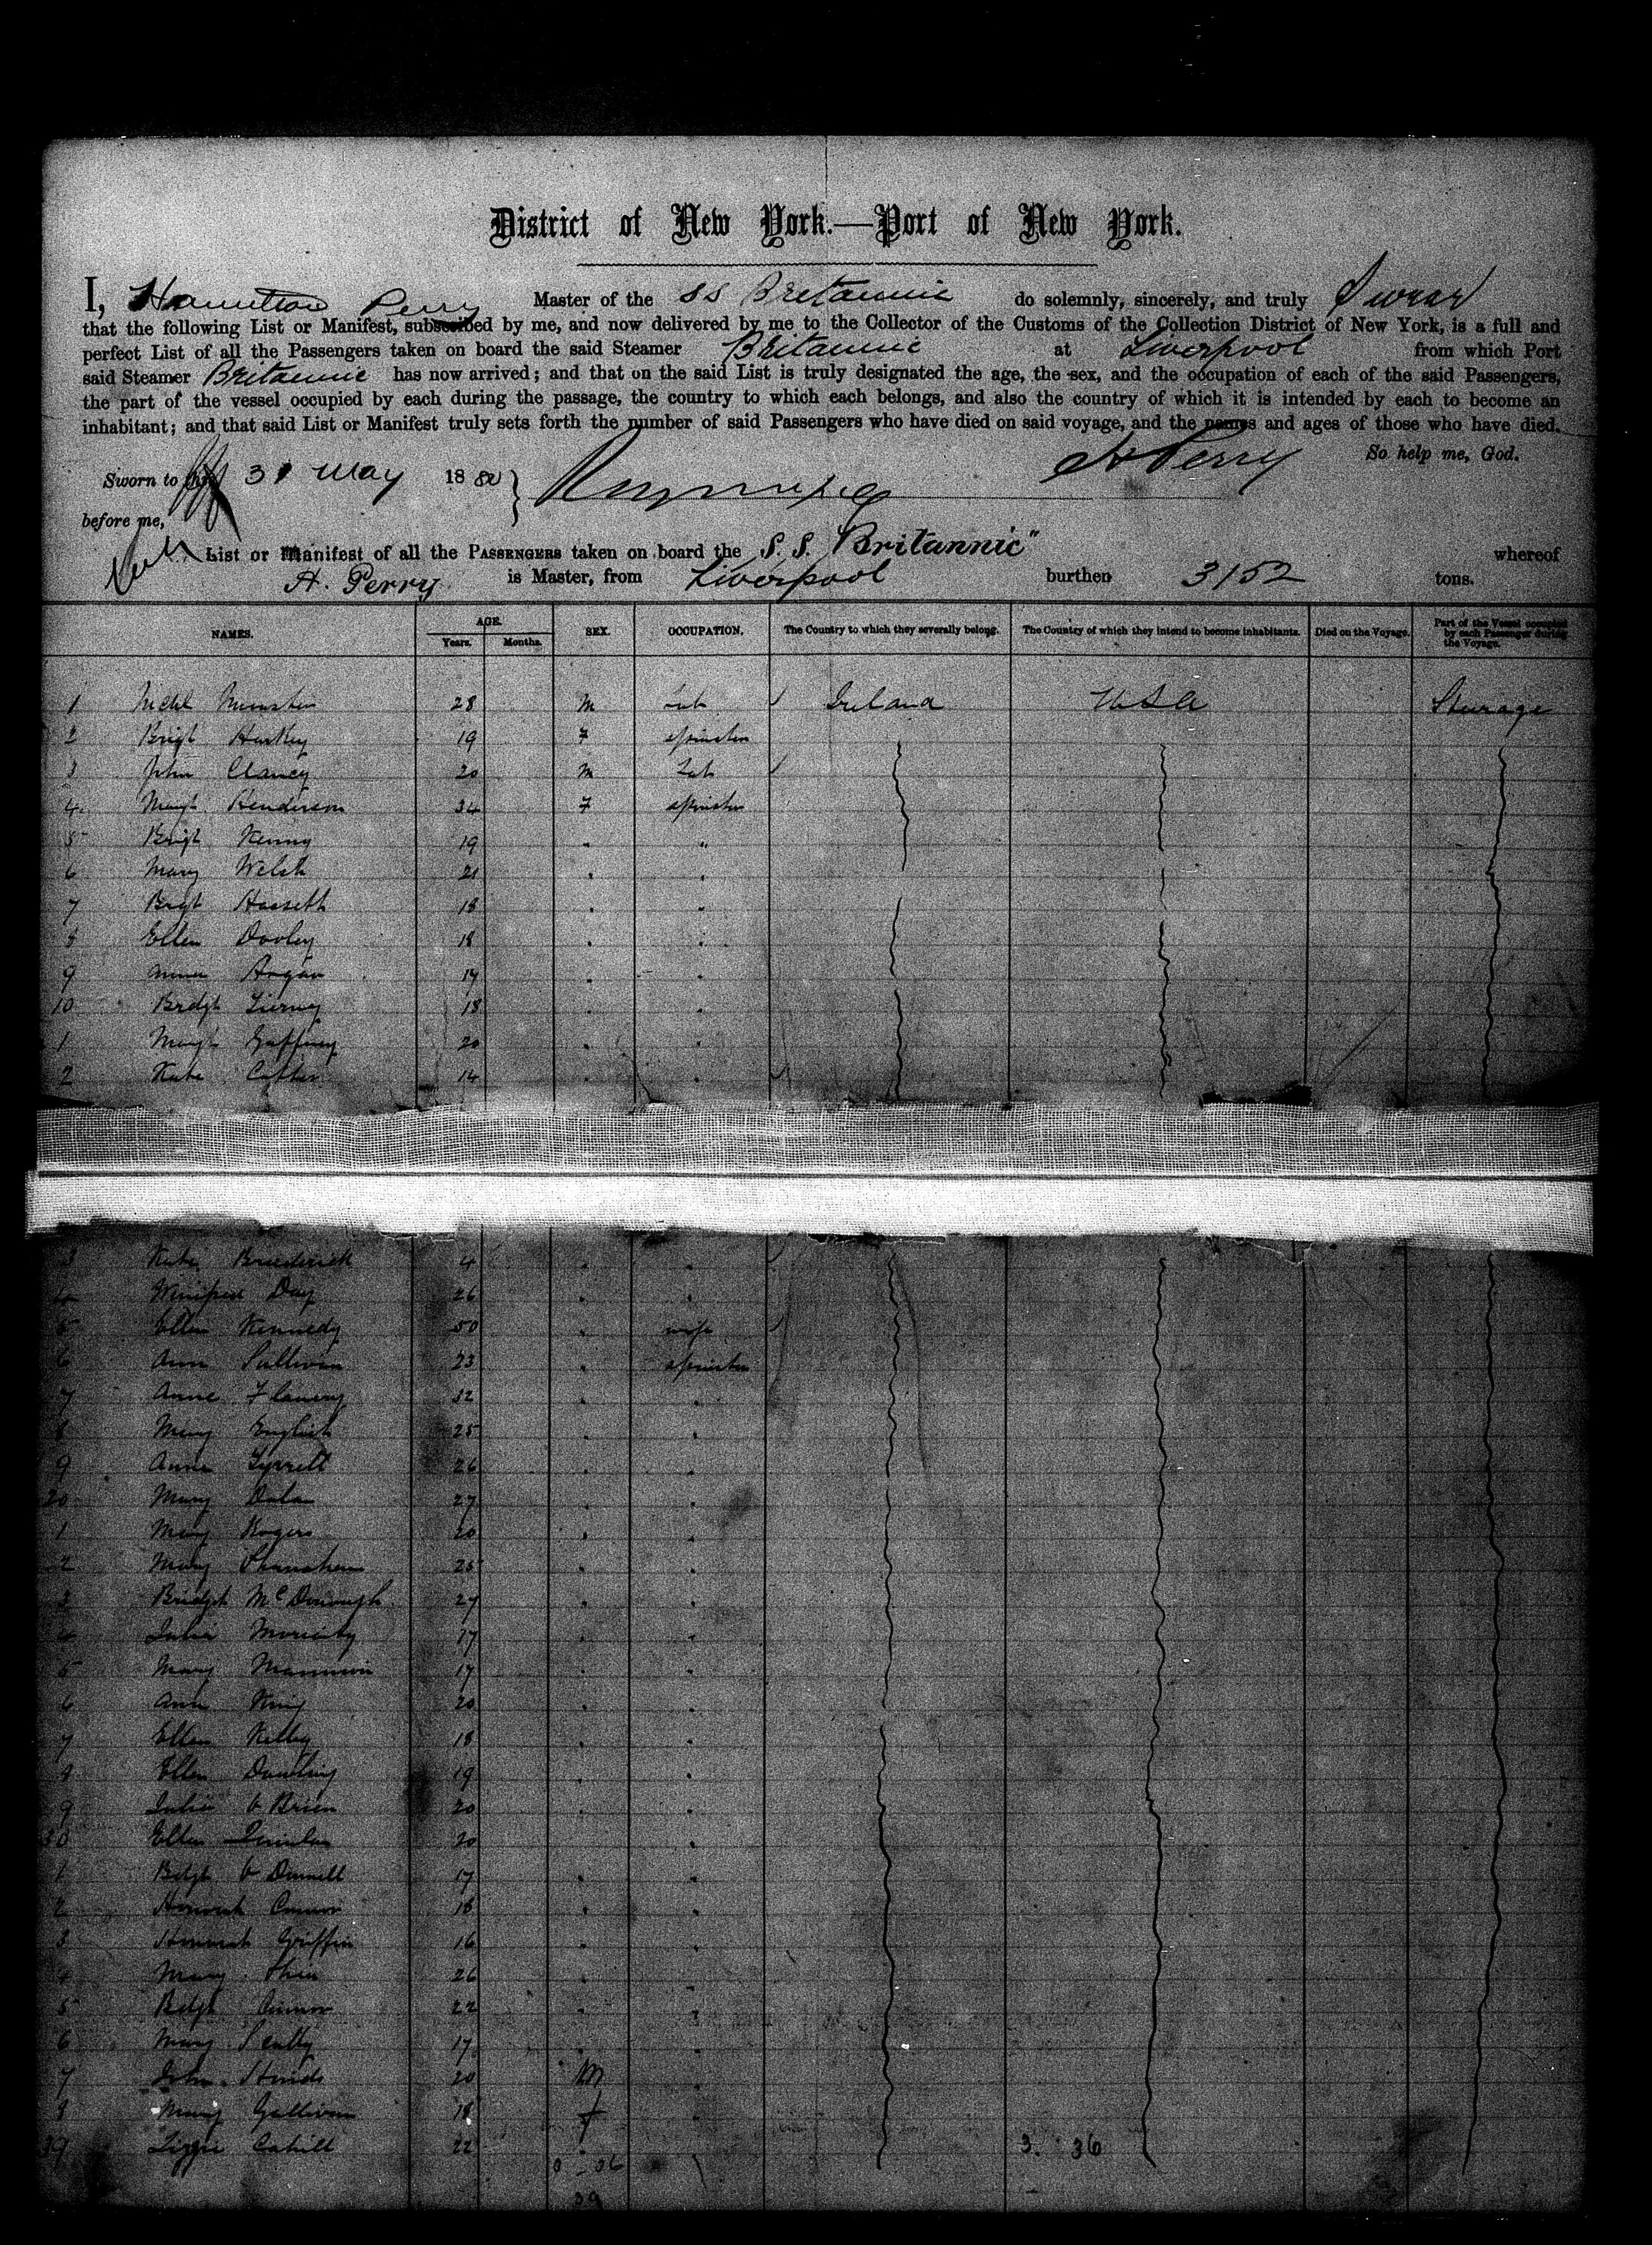 District of New York.—Port of New York.
I, Hamilton Perry Master of the SS Britannic do solemnly, sincerely, and truly Swear
that the following List or Manifest, subscribed by me, and now delivered by me to the Collector of the Customs of the Collection District of New York, is a full and
perfect List of all the Passengers taken on board the said Steamer Britannic at Liverpool from which Port
said Steamer Britannic has now arrived; and that on the said List is truly designated the age, the sex, and the occupation of each of the said Passengers,
the part of the vessel occupied by each during the passage, the country to which each belongs, and also the country of which it is intended by each to become an
inhabitant; and that said List or Manifest truly sets forth the number of said Passengers who have died on said voyage, and the names and ages of those who have died.
So help me, God.
Sworn to this 31 May 1880 H Perry
before me,
List or Manifest of all the PASSENGERS taken on board the S. S. Britannic" whereof
H. Perry is Master, from Liverpool burthen 3152 tons.
NAMES. AGE. SEX. OCCUPATION. The Country to which they severally belong. The Country of which they intend to become inhabitants. Died on the Voyage. Part of the Vessel occupied by each Passenger during the Voyage.
Years. Months.
1 Michl 28 M Lab Ireland USA Steerage
2 Brigt Hurley 19 F spinster
3 John Clancy 20 M Lab
4 Margt Henderson 34 F spinster
5 Brigt Kenny 19 " "
6 Mary Welsh 21 " "
7 Brigt Hassett 18 " "
8 Ellen Dooley 18 " "
9 Hogan 19 " "
10 Bredgt Tierney 18 " "
1 Margt Gaffney 20 " "
2 Kate 14 " "
3 Kate Broderick 4 " "
4 Winifred Day 26 " "
5 Ellen Kennedy 50 " wife
6 Ann Sullivan 23 " spinster
7 Anne Flanery 32 " "
8 Mary English 25 " "
9 Anne Tyrrell 26 " "
20 Mary 27 " "
1 Mary Rogers 20 " "
2 Mary Shanahan 25 " "
3 Bridgt McDonough 27 " "
4 Julia Moriarty 17 " "
5 Mary 17 " "
6 Ann King 20 " "
7 Ellen Kelley 18 " "
8 Ellen Dowling 19 " "
9 Julia O Brien 20 " "
30 Ellen Quinlan 20 " "
1 Bdgt O Donnell 17 " "
2 Honorah Connor 18 " "
3 Honorah Griffin 16 " "
4 Mary Shea 26 " "
5 Bdgt Connor 22 " "
6 Mary Scully 17 " "
7 John Hinds 20 M
8 Mary Gallivan 18 f
39 Lizzie Cahill 22 " 3. 36
39